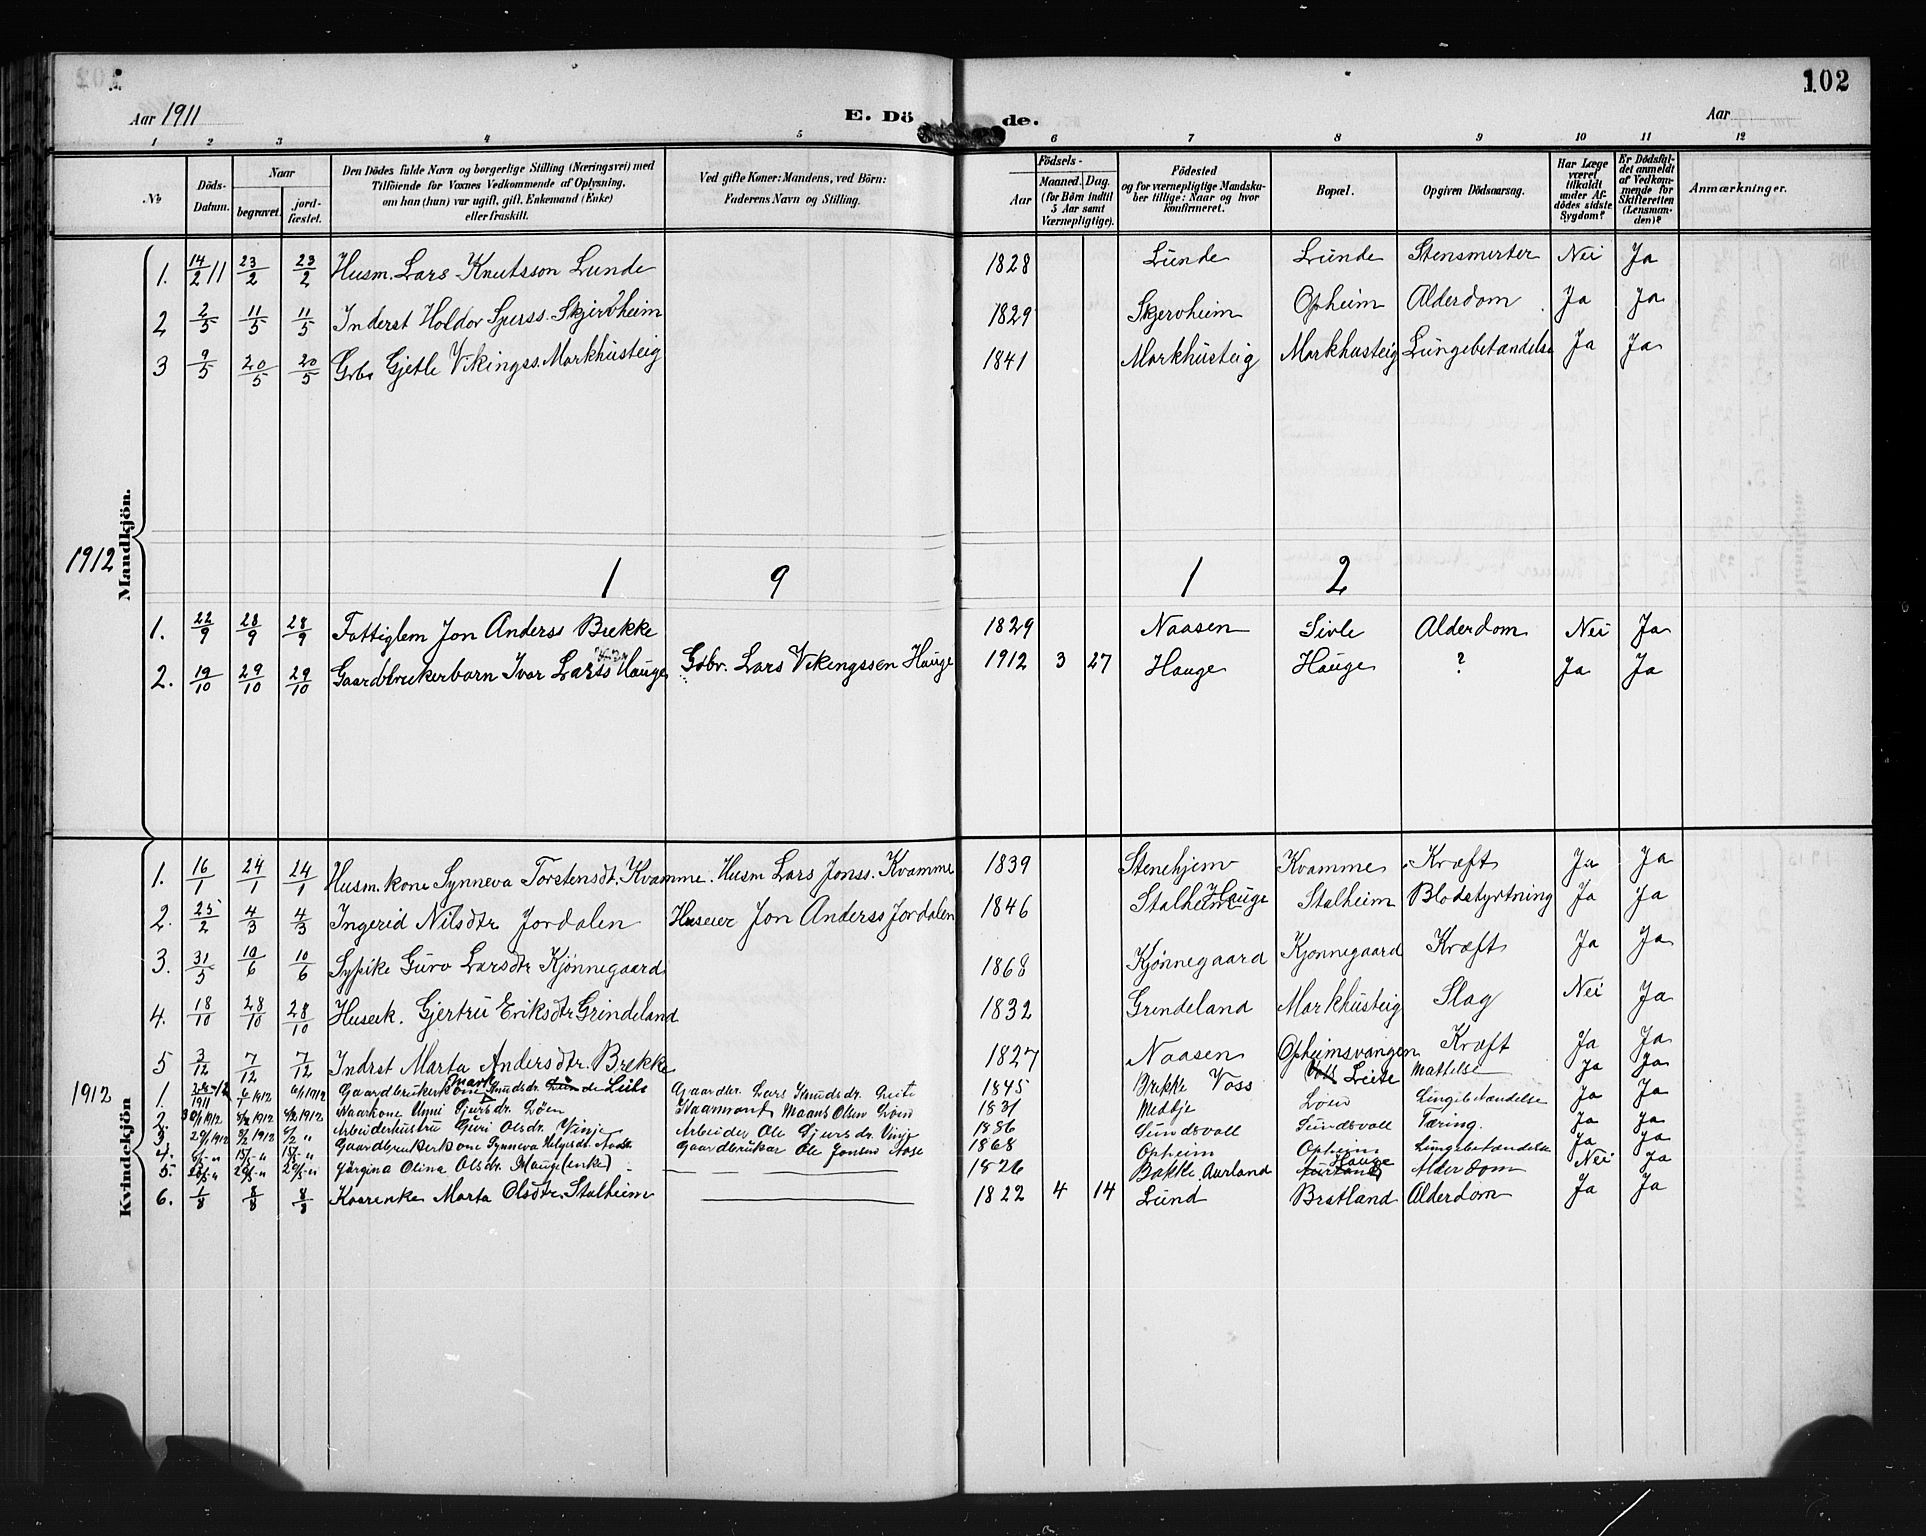 102
Aar 1911
E. Dö de.
Aar
1 2 3 4 5 6 7 8 9 10 11 12
№
Döds-Datum.
Naar
begravet.
jord-fæstet.
Den Dödes fulde Navn og borgerlige Stilling (Næringsvei) med
Tilföiende for Voxnes Vedkommende af Oplysning,
om han (hun) var ugift, gift, Enkemand (Enke)
eller fraskilt.
Ved gifte Koner: Mandens, ved Börn:
Faderens Navn og Stilling.
Födsels-
Aar
Maaned. Dag.
(for Börn indtil
5 Aar samt
Værnepligtige).
Födested
og for værnepligtige Mandska-
ber tillige: Naar og hvor
konfirmeret.
Bopæl.
Opgiven Dödsaarsag.
Har Læge
været
tilkaldt
under Af-
dödes sidste
Sygdom?
Er Dödsfal-
det anmeldt
af Vedkom-
mende for
Skifteretten
(Lensman-
den)?
Anmærkninger.
Mandkjön.
1. 14/2 11 23/2 23/2 Husm. Lars Knutsson Lunde 1828 Lunde Lunde Stensmerter Nei Ja
2 2/5 11/5 11/5 Inderst Holdor Sjurss. Skjervheim 1829 Skjervheim Opheim Alderdom Ja Ja
3 9/5 20/5 20/5 Gbr. Gjetle Vikingss. Markhusteig 1841 Markhusteig Markhusteig Lungebetændelse Ja Ja
1912
1 9 1 2
1. 22/9 28/9 28/9 Fattiglem Jon Anderss Brekke 1829 Naasen Sivle Alderdom Nei Ja
2. 19/10 29/10 29/10 Gaardbrukerbarn Ivar Larss Hauge Gdbr. Lars Vikingssen Hauge 1912 3 27 Hauge Hauge ? Ja Ja
Kvindekjön
1. 16/1 24/1 24/1 Husm. kone Synneva Torstensdt. Kvamme. Husm Lars Jonss. Kvamme 1839 Stenehjem Kvamme Kræft Ja Ja
2. 25/2 4/3 4/3 Ingerid Nilsdtr Jordalen Huseier Jon Anderss Jordalen 1846 Stalheim Hauge Stalheim Blodstyrtning Ja Ja
3. 31/5 10/6 10/6 Sypike Guro Larsdtr Kjønnegaard 1868 Kjønnegaard Kjønnegaard Kræft Ja Ja
4. 18/10 28/10 28/10 Huserk. Gjertru Eriksdtr Grindeland 1832 Grindeland Markhusteig Slag Nei Ja
5 3/12 7/12 7/12 Indrst Marta Andersdtr. Brekke 1827 Naasen Opheimsvangen Kræft Ja Ja
1912 1. 1911 6/1 1912 6/1 1912 Gaardbrukerkone Knudsdr. Gaardbr. Lars 1845 Brekke Voss Leite Mattelse Ja Ja
2. 30/1 1912 1912 1912 Løen Maans Olsen Løen 1831 Medbje Løen Lungebetændelse Ja Ja
3. 29/1 1912 1912 Arbeiderhustru Guri Olsdr. Vinje Arbeider Ole Sjursdr. Vinje 1886 Sundsvoll Sundsvoll Tæring. Ja Ja
4. 15/ 15/ Gaardbrukerkone Synneva Helgesdt. Gaardbrukar Ole Jonsen 1868 Opheim Opheim Lungebetændelse Ja Ja
5. 29/5 29/5 Jørgina Olina Olsdr. Hauge (enke) 1826 Bakke Aurland Hauge Alderdom Nei Ja
6. 1/8 8/8 8/8 Kaarenke Marta Olsdtr. Stalheim 1822 4 14 Lund Bratland Alderdom Ja Ja